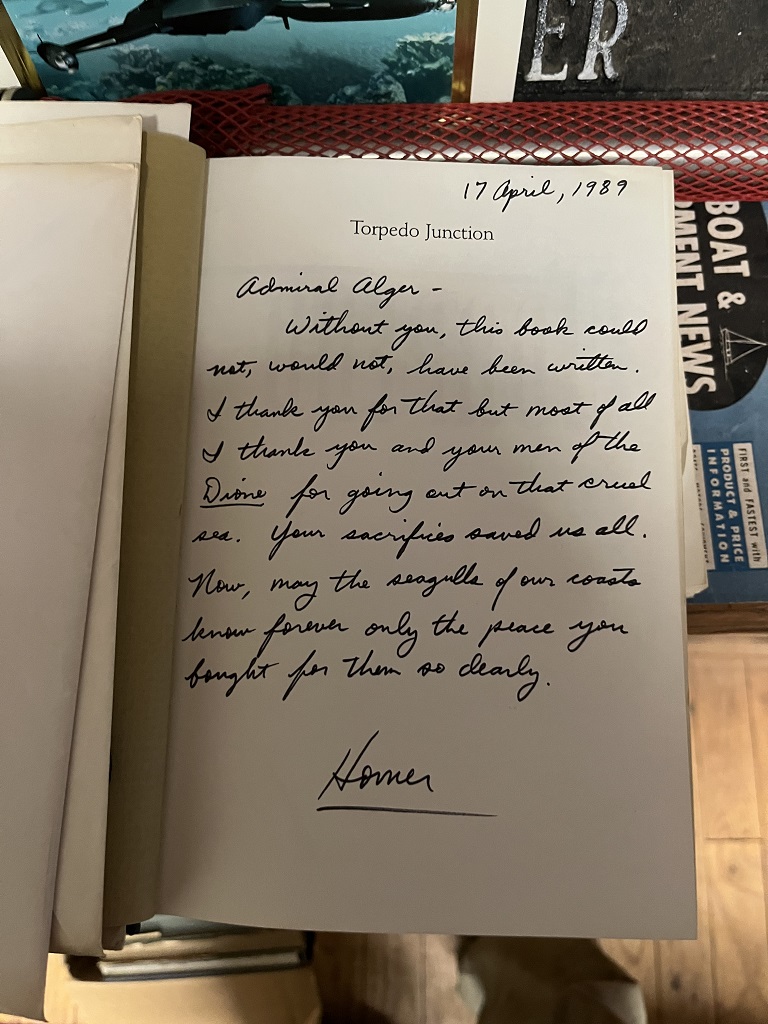 ER
17 April, 1989
Torpedo Junction
Admiral Alger -
Without you, this book could
not, would not, have been written.
I thank you for that but most of all
I thank you and your men of the
Dione for going out on that cruel
sea. Your sacrifices saved us all.
Now, may the seagulls of our coasts
know forever only the peace you
bought for them so dearly.
Homer
BOAT &
MENT NEWS
FIRST and FASTEST with
PRODUCT & PRICE
INFORMATION